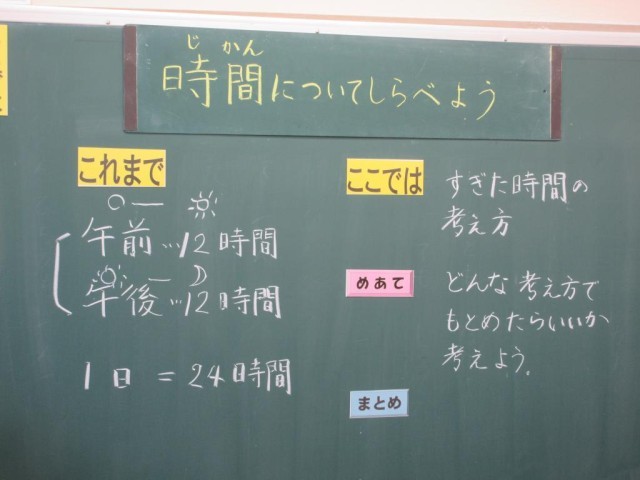 じかん
時間についてしらべよう
これまで
午前…12時間
午後…12時間
1日 = 24時間
ここでは
すぎた時間の
考え方
めあて
どんな考え方で
もとめたらいいか
考えよう。
まとめ